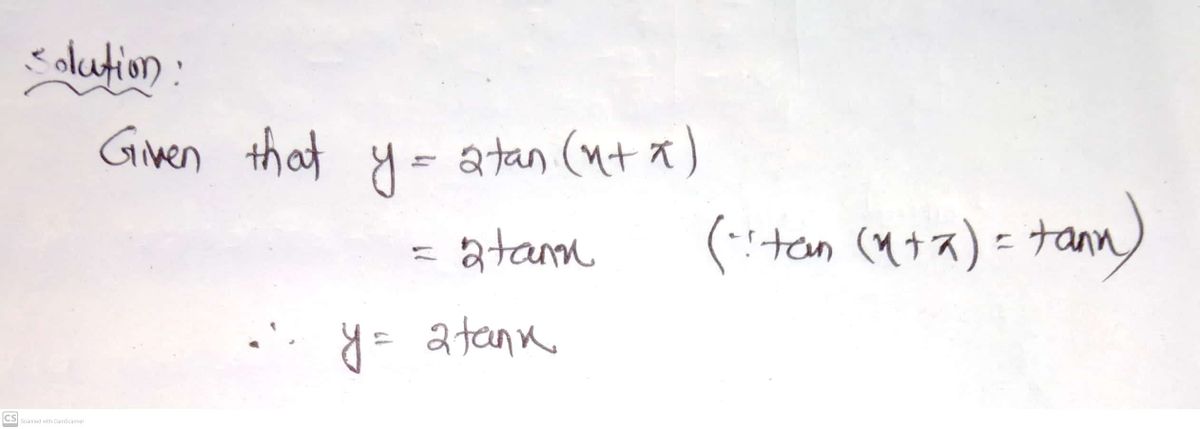 Solution:
Given that y = 2tan(x+π)
= 2tanx (∵ tan (x+π) = tanx)
∴ y = 2tanx
CS Scanned with CamScanner